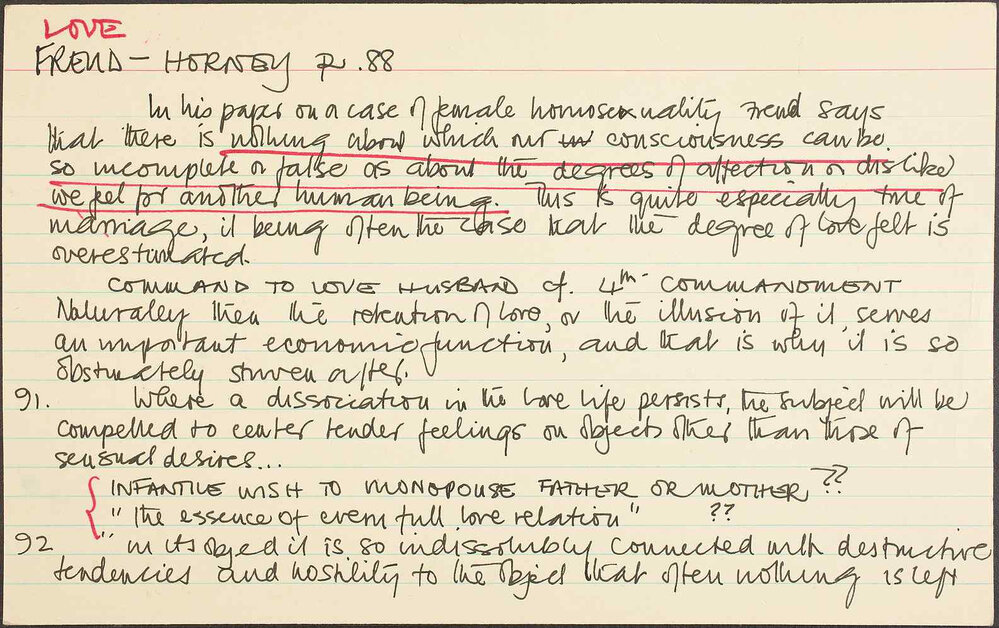 LOVE
FREUD - HORNEY P. 88
In his paper on a case of female homosexuality Freud says
that there is nothing about which our consciousness can be
so incomplete or false as about the degrees of affection or dislike
we feel for another human being. This is quite especially true of
marriage, it being often the case that the degree of love felt is
overestimated.
COMMAND TO LOVE HUSBAND cf. 4th COMMANDMENT
Naturally then the retention of love, or the illusion of it, serves
an important economic function, and that is why it is so
obstinately striven after.
91. Where a dissociation in the love life persists, the subject will be
compelled to center tender feelings on objects other than those of
sensual desires...
INFANTILE WISH TO MONOPOLISE FATHER OR MOTHER ??
"the essence of every full love relation" ??
92 " in its object it is so indissolubly connected with destructive
tendencies and hostility to the object that often nothing is left